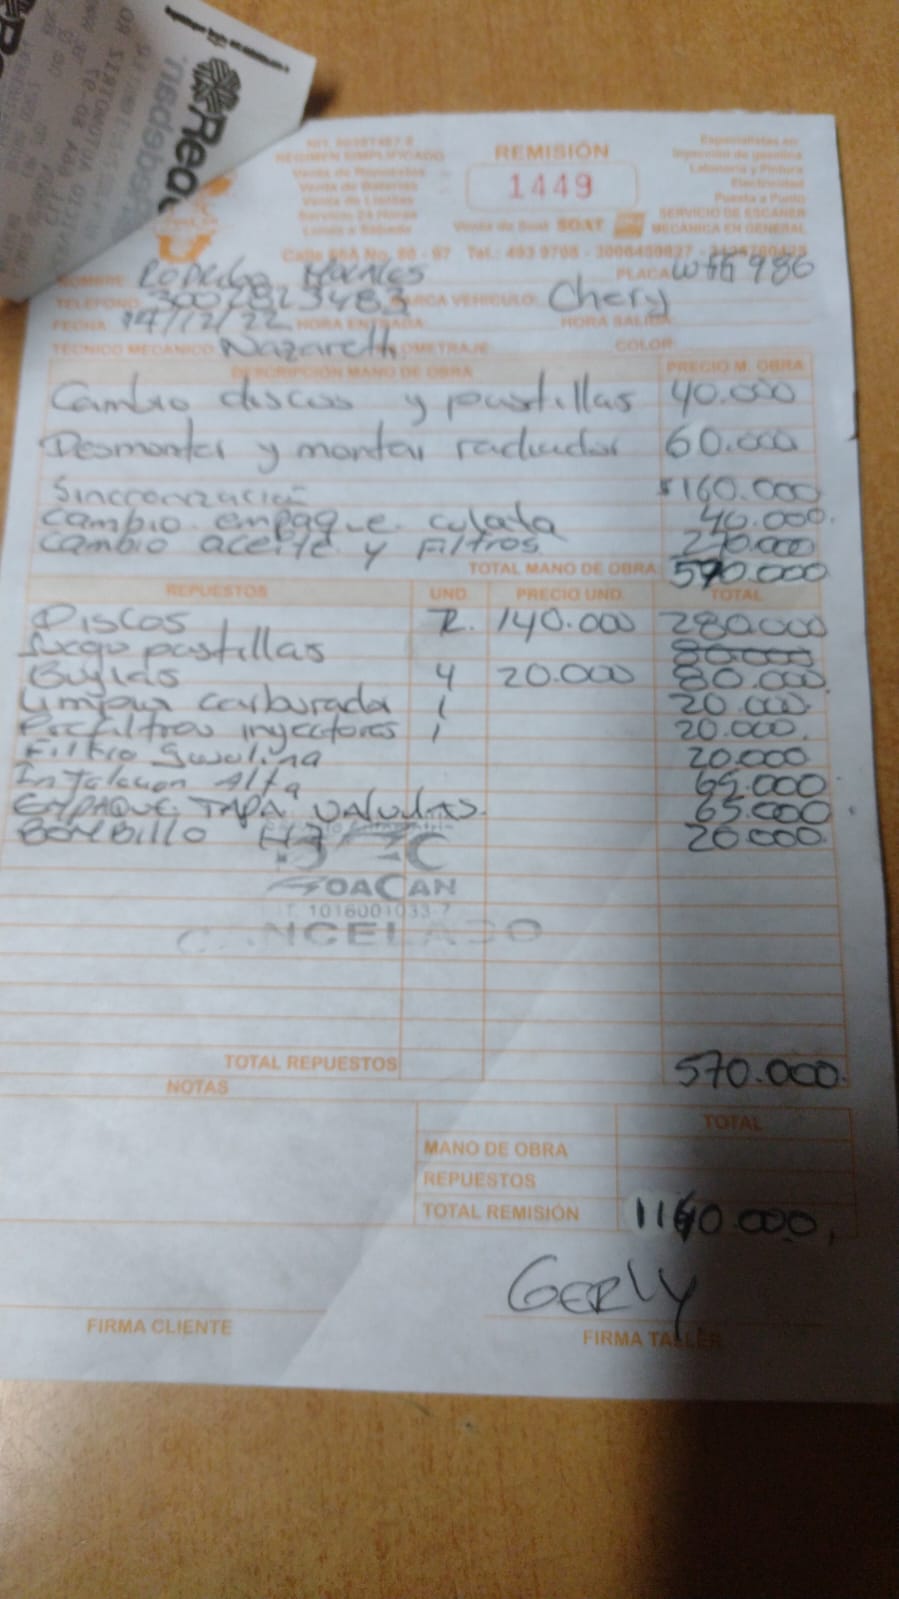 REMISIÓN
1449
REGIMEN SIMPLIFICADO
Venta de Repuestos
Venta de Baterias
Venta de Llantas
Servicio 24 Horas
Lunes a Sabado
Venta de Soat SOAT
Especialistas en:
Inyección de gasolina
Latonería y Pintura
Electricidad
Puesta a Punto
SERVICIO DE ESCANER
MECANICA EN GENERAL
NOMBRE: Morales
PLACA: 986
TELEFONO: 3002823483 MARCA VEHICULO: Chery
FECHA: 14/12/22 HORA ENTRADA: HORA SALIDA:
TECNICO MECANICO: Nazareth KILOMETRAJE: COLOR:
DESCRIPCIÓN MANO DE OBRA PRECIO M. OBRA
Cambio discos y pastillas 40.000
Desmontar y montar radiador 60.000
Sincronización $160.000
Cambio empaque culata 40.000
Cambio aceite y Filtros
TOTAL MANO DE OBRA: 590.000
REPUESTOS UND. PRECIO UND. TOTAL
Discos 2. 140.000 280.000
Juego pastillas 80.000
Bujias 4 20.000 80.000
Limpia carburada 1 20.000
Prefiltros inyectores 1 20.000.
Filtro Gasolina 20.000
Instalacion Alta 65.000
EMPAQUE TAPA Valvulas. 65.000
BOMBILLO H7 20.000
GOACAN
1016001033-7
CANCELADO
TOTAL REPUESTOS 570.000.
NOTAS
TOTAL
MANO DE OBRA
REPUESTOS
TOTAL REMISIÓN 1160.000,
GERLY
FIRMA CLIENTE
FIRMA TALLER